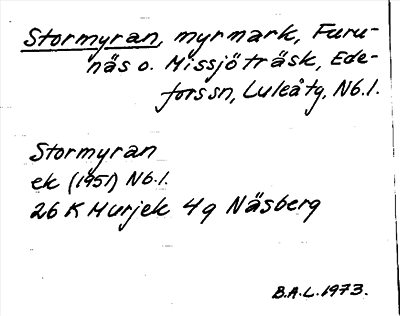 Stormyran, myrmark, Furu-
näs o. Missjöträsk, Ede-
forssn, Luleåtg, Nb.l.
Stormyran
ek (1951) Nb.l.
26 K Murjek 4g Näsberg
B.A.L. 1973.